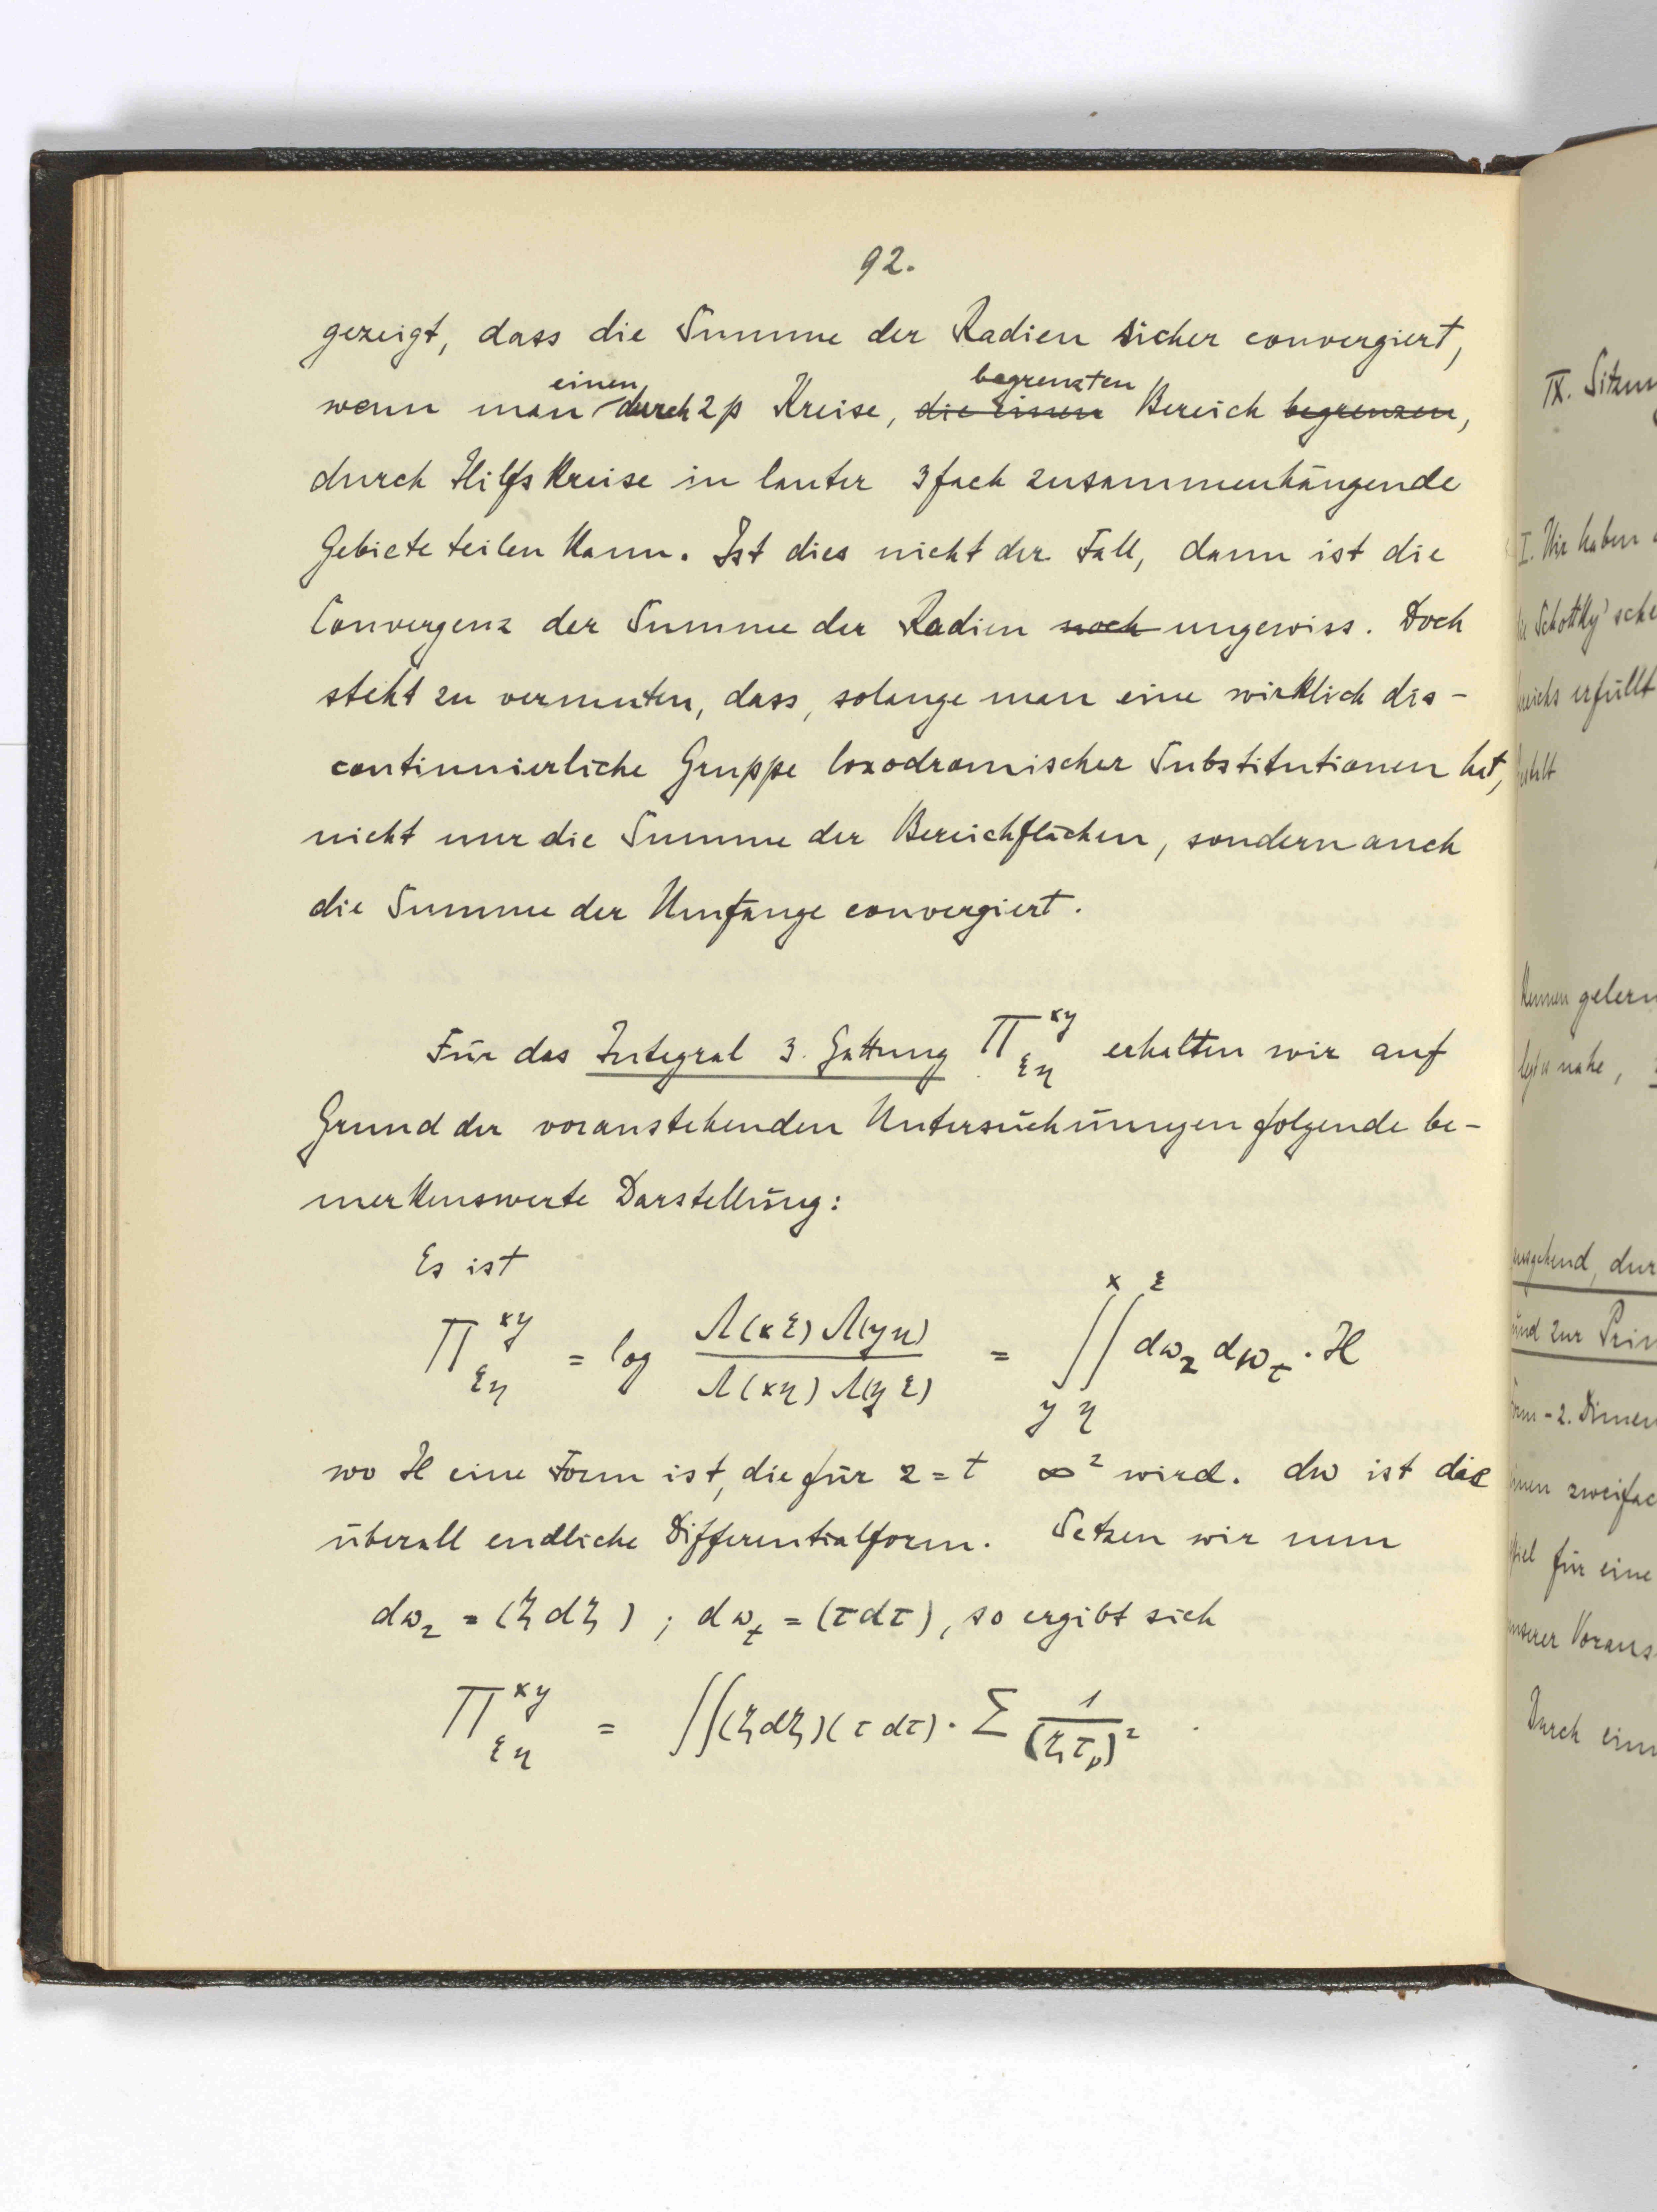 92.
gezeigt, dass die Summe der Radien sicher convergiert,
einen begrenzten
wenn man durch 2p Kreise, die einen Bereich begrenzen,
durch Hilfskreise in lauter 3fach zusammenhängende
Gebiete teilen kann. Ist dies nicht der Fall, dann ist die
Convergenz der Summe der Radien noch ungewiss. Doch
steht zu vermuten, dass, solange man eine wirklich dis-
continuierliche Gruppe loxodromischer Substitutionen hat,
nicht nur die Summe der Bereichflächen, sondern auch
die Summe der Umfänge convergiert.
Für das Integral 3. Gattung Π^{xy}_{ξη} erhalten wir auf
Grund der voranstehenden Untersuchungen folgende be-
merkenswerte Darstellung:
Es ist
Π^{xy}_{ξη} = log Λ(xξ) Λ(yη) / Λ(xη) Λ(yξ) = ∫^x_y ∫^ξ_η dω_z dω_t · H
wo H eine Form ist, die für z = t ∞² wird. dω ist die
überall endliche Differentialform. Setzen wir nun
dω_z = (ζ dζ) ; dω_t = (τ dτ), so ergibt sich
Π^{xy}_{ξη} = ∬ (ζ dζ)(τ dτ) · Σ 1 / (ζ τ_ν)²
IX.
I. Wir haben
Schottky'sche
erfüllt
nahe,
und zur
zweifac
für eine
Durch